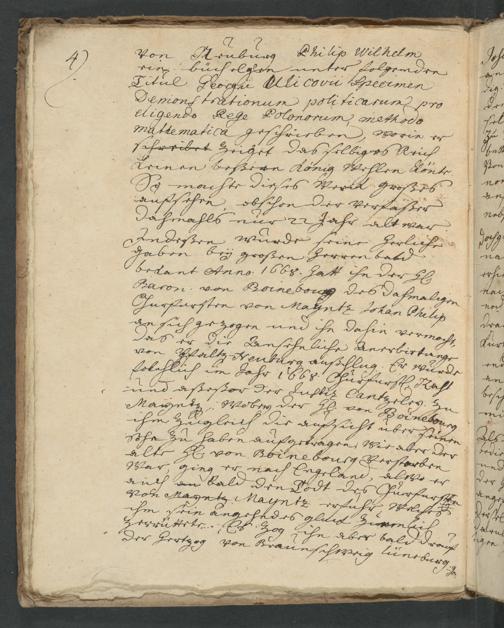 4)
von Neuburg Philip Wilhelm
ein büchelgen unter folgenden
Titul Georgii Ulicovii Specimen
Demonstrationum politicarum pro
eligendo Rege Polonorum methodo
mathematica geschrieben, worin er
schreibet zeiget das selbiges Reich
keinen beßeren König wehlen könte
Es machte dieses Werck großes
aufsehen, obschon der verfaßer
dahmahls nur 22 Jahr alt war
Indeßen wurde seine herliche
gaben bey großen Herren bald
bekant Anno 1668 hatt ihn der H.
Baron von Boinebourg des dahmaligen
Churfürsten von Mayntz Johan Philip
an sich gezogen und ihn dahin vermocht,
das er die Ansehnliche Anerbietunge
von Pfaltz Neuburg ausschlug. Er wurde
folglich im Jahr 1668 Churfürstl. Raht
und assessor der Justitz Cantzeley zu
Mayntz, wobey der H. von Boinebourg
ihm zugleich die aufsicht über seinen
Sohn zu haben aufgetragen. Wie aber der
alte H. von Boinebourg verstorben
war, ging er nach Engeland, alwo er
auch bald den Todt des Churfürsten
von Mayntz erfuhr, welches
ihm sein glück ziemlich
zerrüttete. Es zog ihn aber bald drauf
der Hertzog von Braunschweig Lüneburg